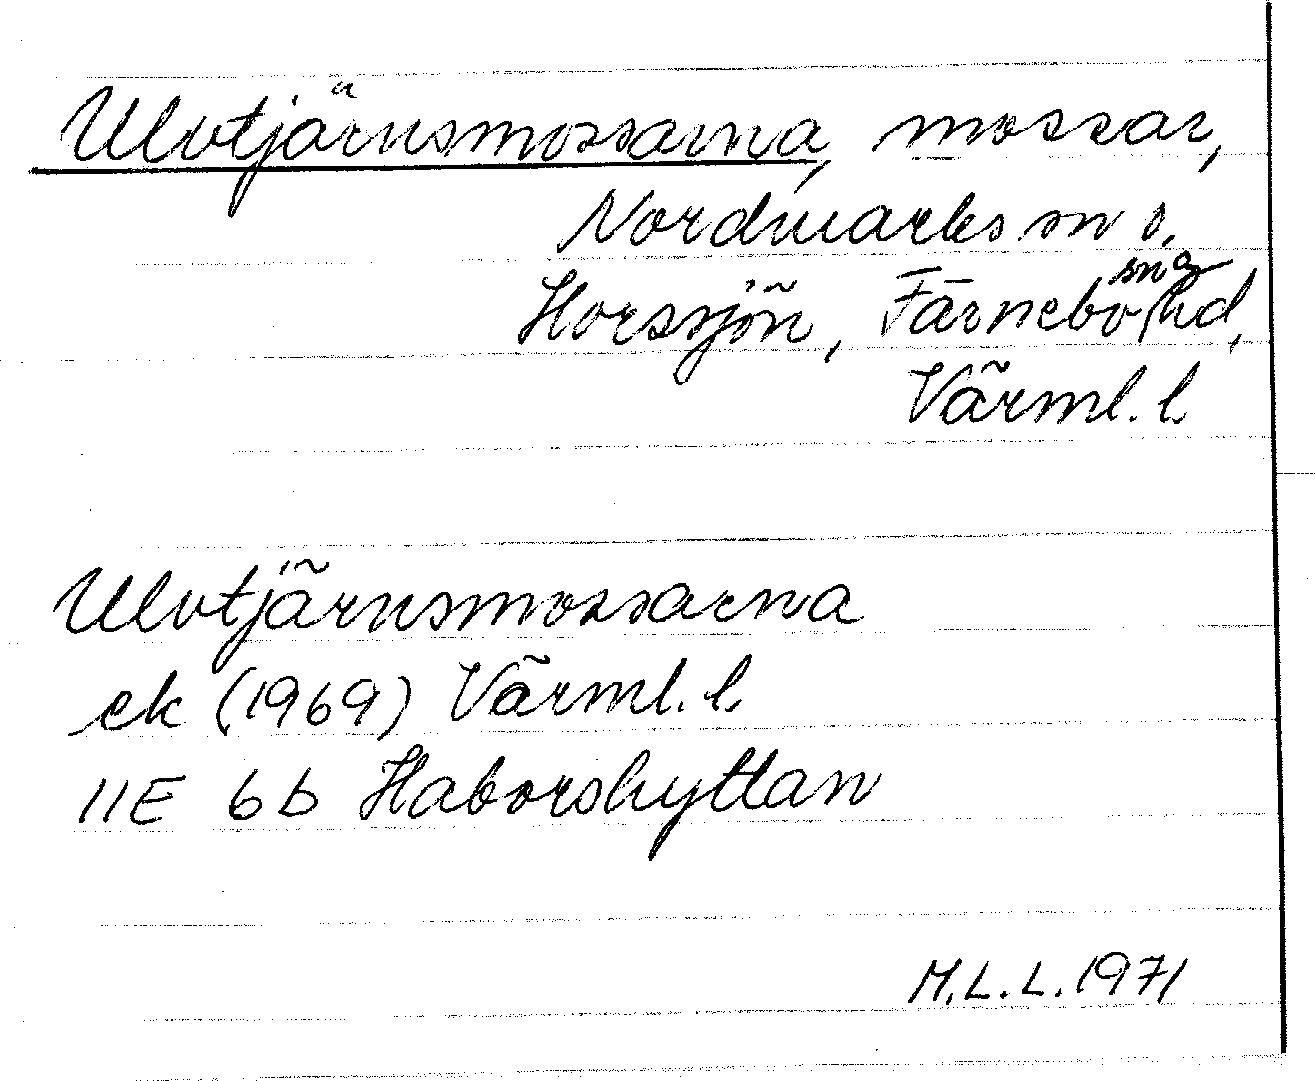 Ulvtjärnsmossarna, mossar,
Nordmarks sn o.
Horssjön, Färnebo sna hd,
Värml. l.
Ulvtjärnsmossarna
ek (1969) Värml. l.
11E 6b Haborshyttan
M.L.L. 1971